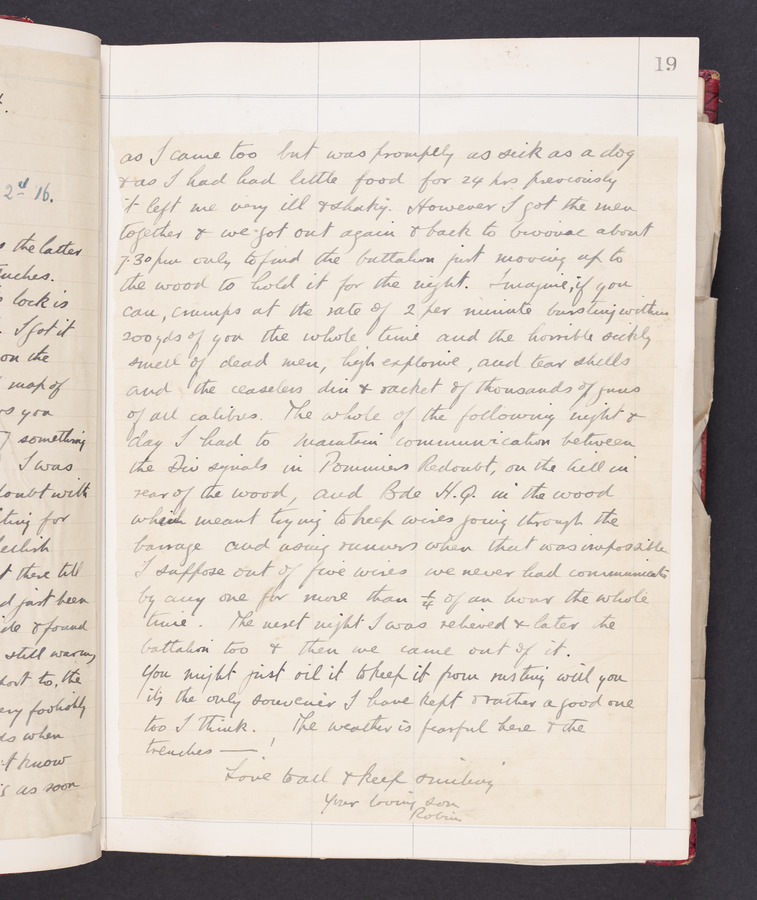 2nd 16.
the latter
lock is
I got it
on the
map of
you
something
I was
with
for
there till
just been
& found
still warm,
to, the
foolishly
when
know
as soon
19
as I came too but was promptly as sick as a dog
& as I had had little food for 24 hrs previously
it left me very ill & shaky. However I got the men
together & we got out again & back to bivouac about
7.30 pm only to find the battalion just moving up to
the wood to hold it for the night. Imagine, if you
can, crumps at the rate of 2 per minute bursting within
200 yds of you the whole time and the horrible sickly
smell of dead men, high explosive, and tear shells
and the ceaseless din & racket of thousands of guns
of all calibres. The whole of the following night &
day I had to maintain communication between
the Div signals in Pommiers Redoubt, on the hill in
rear of the wood, and Bde H.Q. in the wood
which meant trying to keep wires going through the
barrage and using runners when that was impossible
I suppose out of five wires we never had communicatn
by any one for more than ¼ of an hour the whole
time. The next night I was relieved & later the
battalion too & then we came out of it.
You might just oil it to keep it from rusting will you
it's the only souvenir I have kept & rather a good one
too I think. The weather is fearful here & the
trenches — !
Love to all & keep smiling
Your loving son
Robin